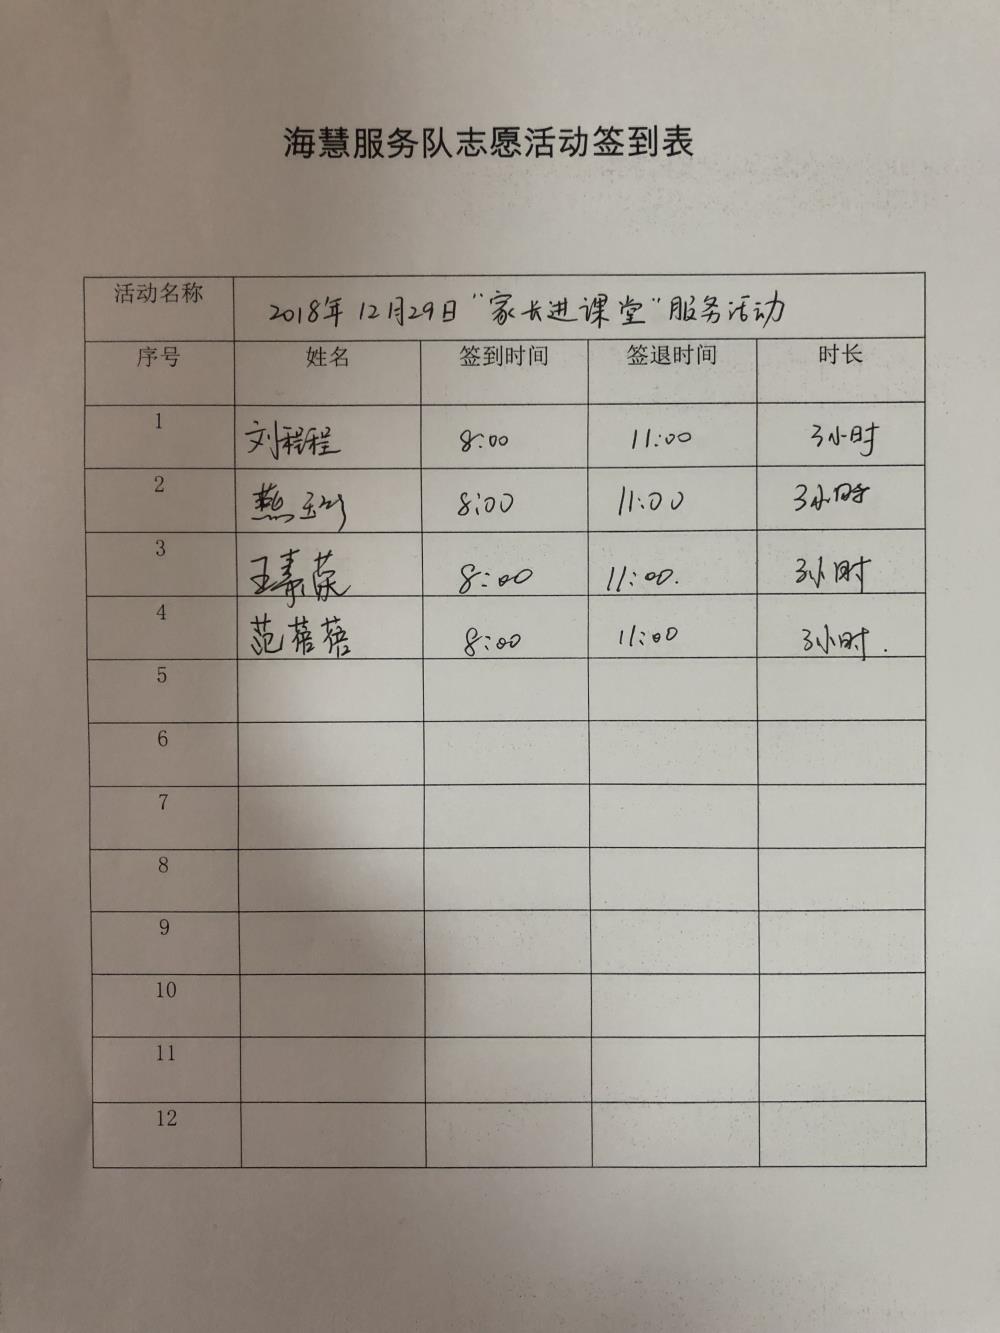 海慧服务队志愿活动签到表
活动名称 2018年12月29日"家长进课堂"服务活动
序号 姓名 签到时间 签退时间 时长
1 刘程程 8:00 11:00 3小时
2 燕玉 8:00 11:00 3小时
3 王素荣 8:00 11:00. 3小时
4 范蓓蓓 8:00 11:00 3小时.
5
6
7
8
9
10
11
12